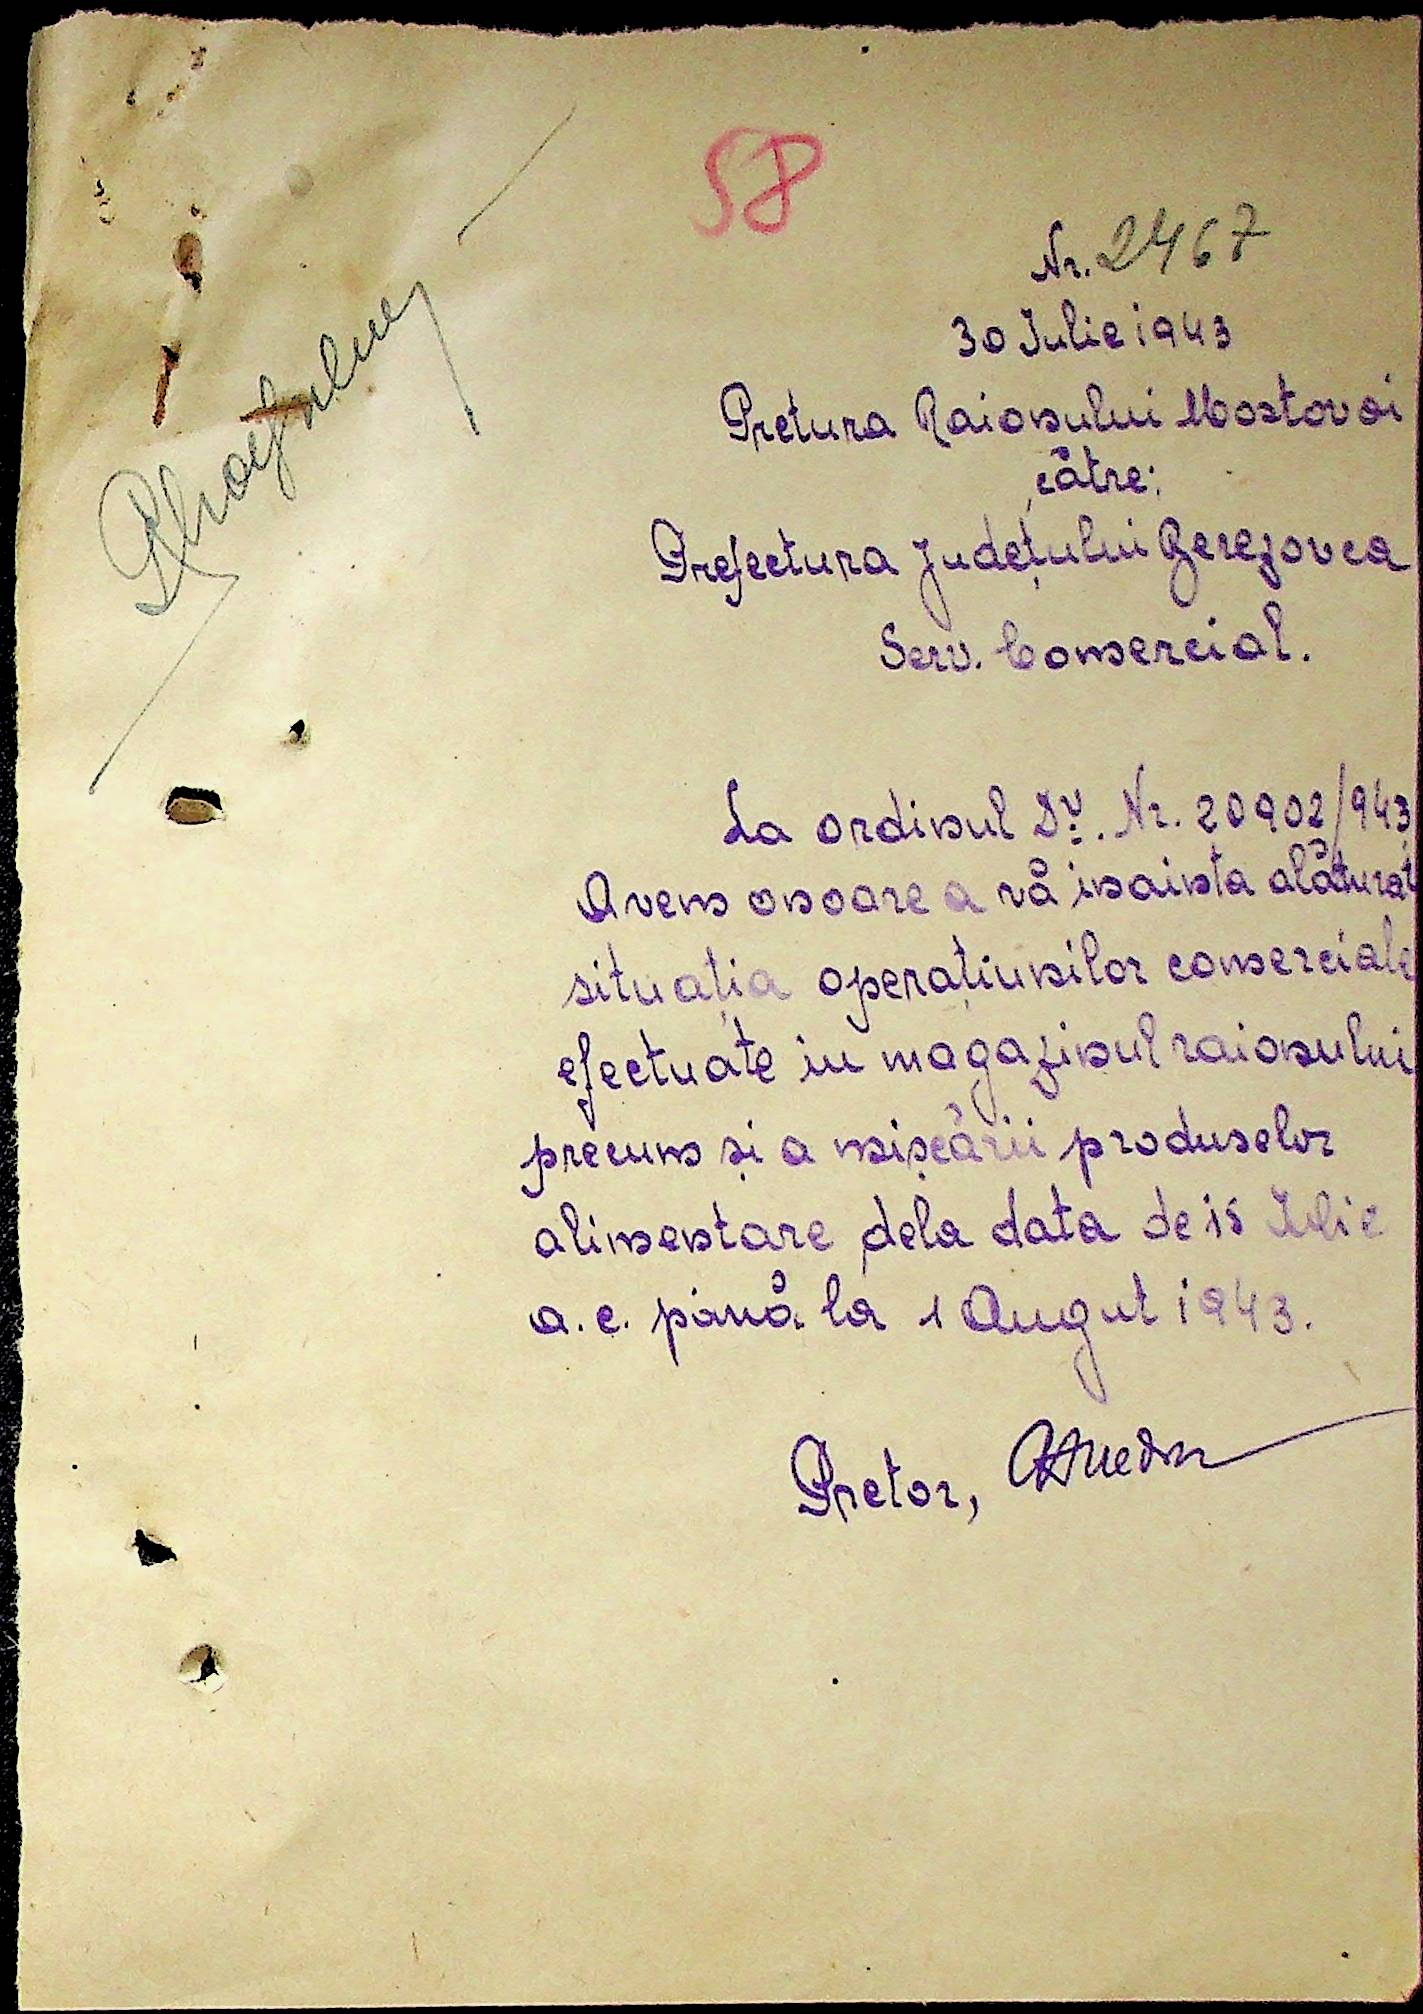 58
Nr. 2467
30 Iulie 1943
Pretura Raionului Mostovoi
către:
Prefectura Județului Berezovca
Serv. Comercial.
La ordinul Dv. Nr. 20902/943,
Avem onoare a vă înainta alăturat
situația operațiunilor comerciale
efectuate in magazinul raionului
precum și a mișcării produselor
alimentare dela data de 15 Iulie
a.c. până la 1 Augut 1943.
Pretor,